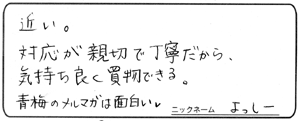 近い。
対応が親切で丁寧だから、
気持ち良く買物できる。
青梅のメルマガは面白い
ニックネーム よっしー